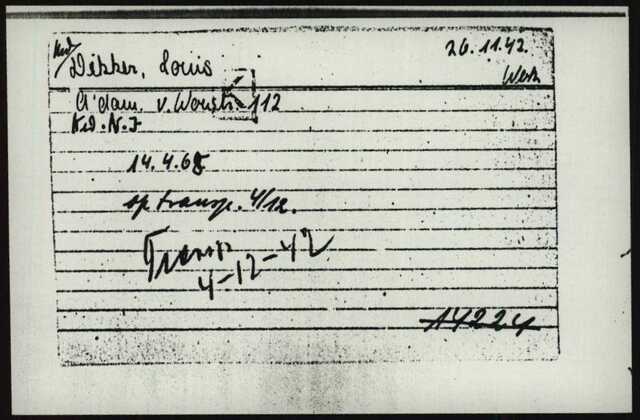 Dikker, Louis 26.11.42.
A'dam. v. Woustr. 112
Ked. N.I
14.4.68
op transp. 4/12.
Transp
4-12-42
14224